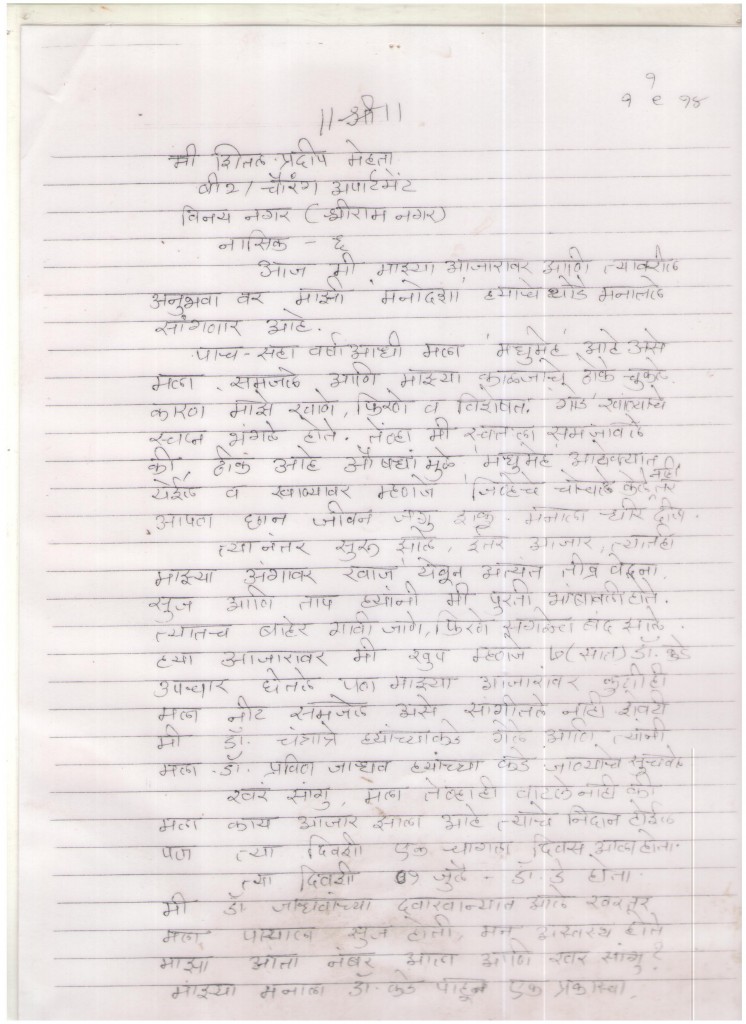 १
१ ९ १४
॥श्री॥
मी शितल प्रदीप मेहता
बी २/ चौरंग अपार्टमेंट
विनय नगर (श्रीराम नगर)
नासिक - ६
आज मी माझ्या आजारावर आणि त्यावरील
अनुभवा वर माझी मनोदशा ह्याचे थोडे मनातले
सांगणार आहे.
पाच-सहा वर्षाआधी मला 'मधुमेह' आहे असे
मला समजले आणि माझ्या काळजाचे ठोके चुकले
कारण माझे खाणे, फिरणे व विशेषत: गोड खाण्याचे
स्वप्न भंगले होते. तेंव्हा मी स्वतःला समजावले
की, ठीक आहे औषधांमुळे मधुमेह आटोक्यात
येईल व खाण्यावर म्हणजे जिभेचे चोचले केले नाही तर
आपण छान जीवन जगु शकु. मनाला धीर दीला.
त्या नंतर सुरू झाले, इतर आजार, त्यातही
माझ्या अंगावर खाज येवून अत्यंत तीव्र वेदना
सुज आणि ताप ह्यांनी मी पुरती भंडावली होते.
त्यातच बाहेर गावी जाणे, फिरणे सगळेच बंद झाले
ह्या आजारावर मी खुप म्हणजे ७(सात) डॉ. कडे
उपचार घेतले पण माझ्या आजारावर कुणीही
मला नीट समजेल असे सांगीतले नाही शेवटी
मी डॉ. चंद्रात्रे ह्यांच्याकडे गेले आणि त्यांनी
मला डॉ. प्रविण जाधव ह्यांच्या कडे जाण्याचे सुचवले
खरं सांगु, मला तेव्हाही वाटले नाही की
मला काय आजार झाला आहे त्याचे निदान होईल
पण त्या दिवशी एक चांगला दिवस आला होता.
त्या दिवशी ०१ जुलै - डॉ. डे होता
मी डॉ जाधवांच्या दवाखान्यात आले खरंतर
मला पायाला सुज होती, मन अस्वस्थ होते
माझा आता नंबर आला आणि खर सांगु ?
माझ्या मनाला डॉ. कडे पाहून एक प्रकारचा